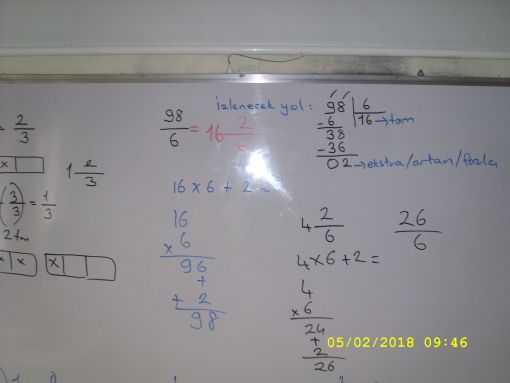 2/3
x
1 2/3
(3/3) = 1/3
2 tam
x x
x
98/6 = 16 2/6
16 x 6 + 2 =
16
x 6
96
+
+ 2
98
izlenecek yol:
98 | 6
-6 16 → tam
38
-36
02 → ekstra/artan/fazla
4 2/6
26/6
4 x 6 + 2 =
4
x 6
24
+
2
26
05/02/2018 09:46